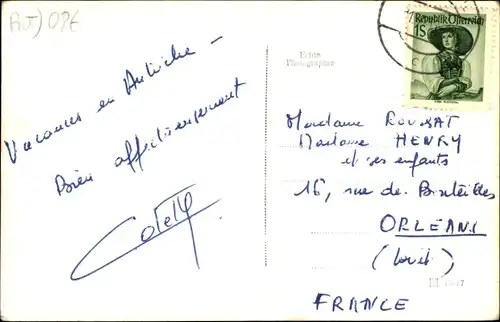 Vacances en Autriche –
Bien affectueusement
Echte
Photographie
Republik Österreich
1S
Madame
Madame HENRY
et ses enfants
16, rue de
ORLEANS
(Loiret)
FRANCE